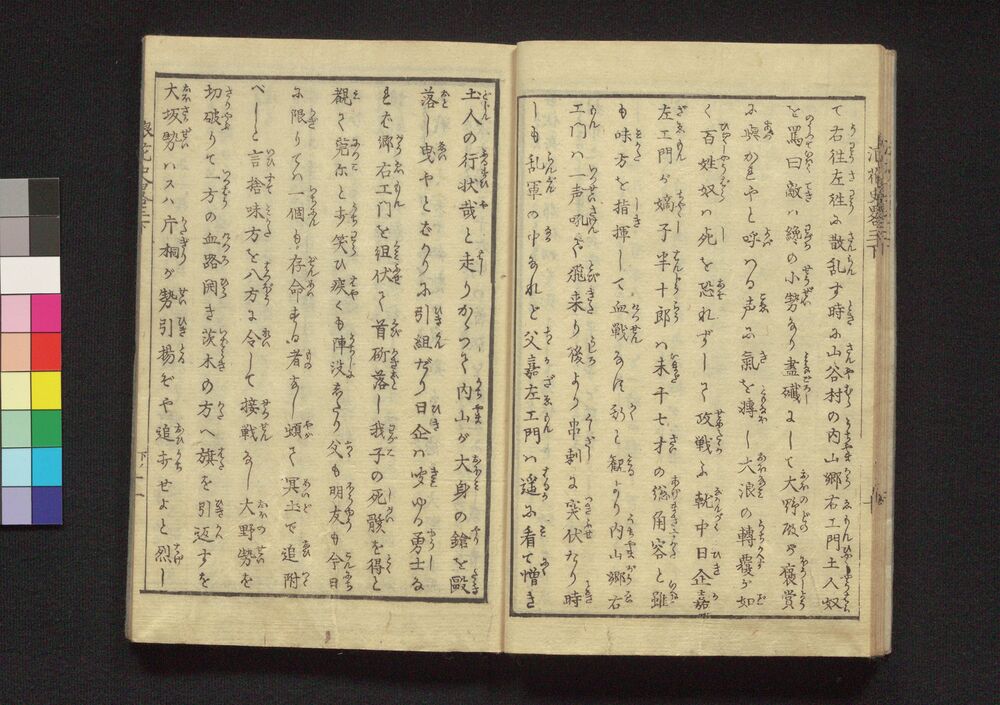 て右往左往に散乱す時に山谷村の内山郷右エ門土人奴
を罵曰敵ハ纔の小勢なり盡殱にして大野殿の褒賞
に與かれやと呼はる声に氣を得し大浪の轉覆が如
く百姓奴ハ死を恐れずして攻戦ふ就中日企嘉
左エ門が嫡子半十郎ハ未十七才の総角容と雖
も味方を指揮して血戦なすにぞ観より内山郷右
エ門ハ一声吼て飛来り後より串刺に突伏たり時
しも乱軍の中なれと父嘉左エ門ハ遥に看て憎き
土人の行状哉と走りかゝつて内山が大身の鎗を毆
落し曳やとばかりに引組だり日企ハ聞ゆる勇士な
れば郷右エ門を組伏て首斫落し我子の死骸を得と
覩て莞尓と打笑ひ疾くも陣没したり父も明友も今日
に限りてハ一個も存命する者なし頓て冥土で追附
べしと言捨味方を八方に令して接戦なし大野勢を
切破りて一方の血路開き茨木の方へ旗を引返すを
大坂勢ハスハ片桐が勢引揚ぞや追打せよと烈し
下ノ十一